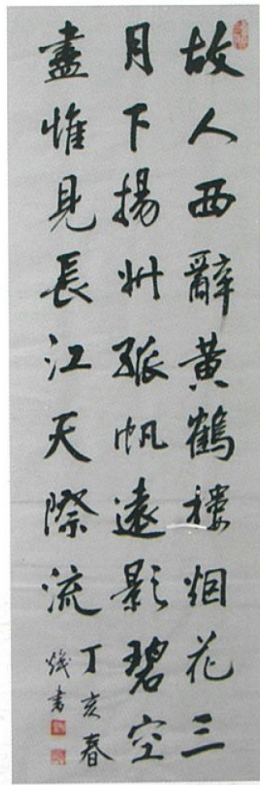 故人西辭黃鶴樓烟花三
月下揚州孤帆遠影碧空
盡惟見長江天際流
丁亥春
書